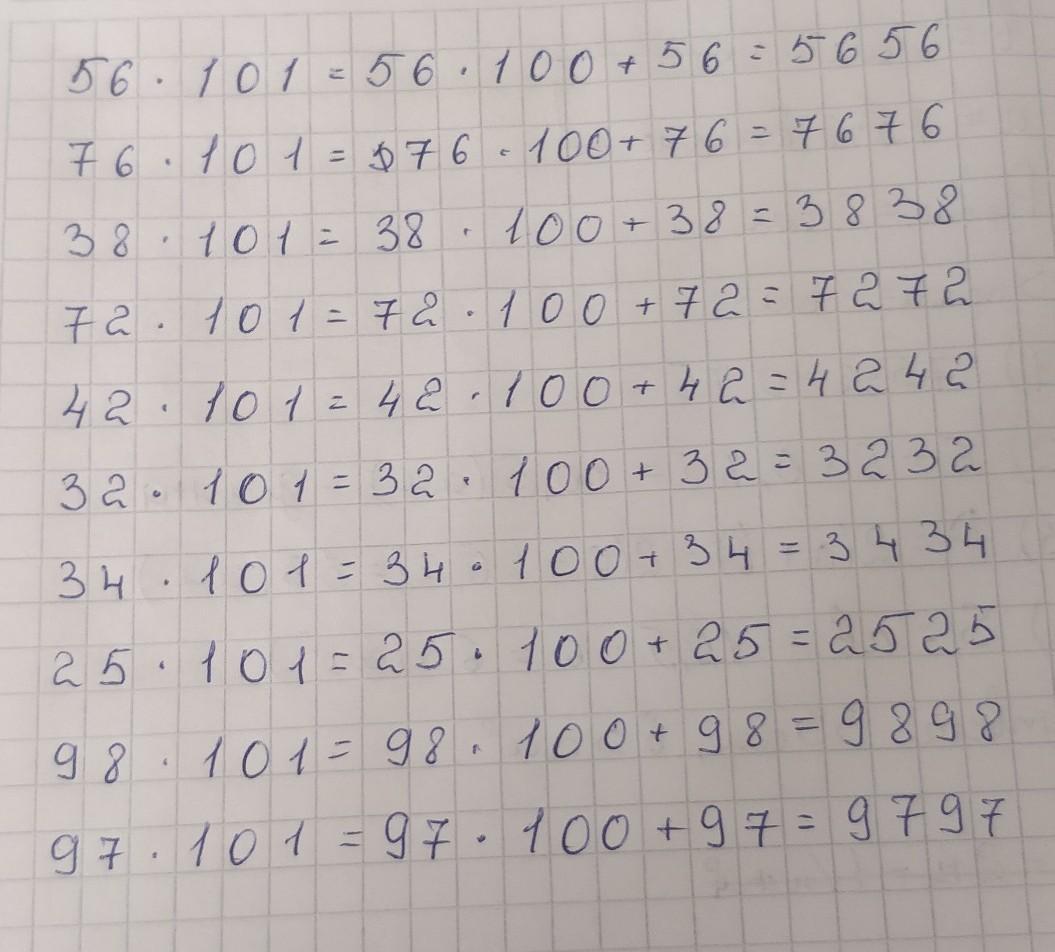 56 · 101 = 56 · 100 + 56 = 5656
76 · 101 = 76 · 100 + 76 = 7676
38 · 101 = 38 · 100 + 38 = 3838
72 · 101 = 72 · 100 + 72 = 7272
42 · 101 = 42 · 100 + 42 = 4242
32 · 101 = 32 · 100 + 32 = 3232
34 · 101 = 34 · 100 + 34 = 3434
25 · 101 = 25 · 100 + 25 = 2525
98 · 101 = 98 · 100 + 98 = 9898
97 · 101 = 97 · 100 + 97 = 9797